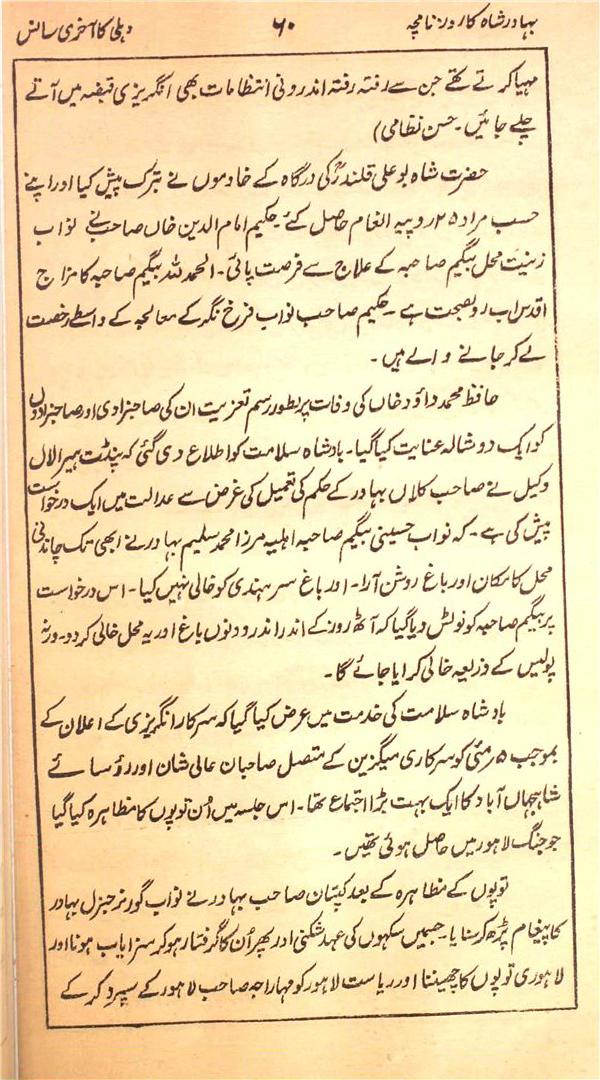 بہادر شاہ کا روزنامچہ ۶۰ دہلی کا آخری سانس
مہیا کرتے تھے جن سے رفتہ رفتہ اندرونی انتظامات بھی انگریزی قبضہ میں آتے
چلے جائیں۔ حسن نظامی)
حضرت شاہ بوعلی قلندرؒ کی درگاہ کے خادموں نے تبرک پیش کیا اور اپنے
حسب مراد ۲۵ روپیہ انعام حاصل کئے۔ حکیم امام الدین خاں صاحب نے نواب
زینت محل بیگم صاحبہ کے علاج سے فرصت پائی۔ الحمد للہ بیگم صاحبہ کا مزاج
اقدس اب روبصحت ہے۔ حکیم صاحب نواب فرخ نگر کے معالجہ کے واسطے رخصت
لے کر جانے والے ہیں۔
حافظ محمد داؤد خاں کی وفات پر بطور رسم تعزیت ان کی صاحبزادی اور صاحبزادوں
کو ایک دوشالہ عنایت کیا گیا۔ بادشاہ سلامت کو اطلاع دی گئی کہ پنڈت ہیرا لال
وکیل نے صاحب کلاں بہادر کے حکم کی تعمیل کی غرض سے عدالت میں ایک درخواست
پیش کی ہے۔ کہ نواب حسینی بیگم صاحبہ اہلیہ مرزا محمد سلیم بہادر نے ابھی تک چاندنی
محل کا مکان اور باغ روشن آرا۔ اور باغ سرہندی کو خالی نہیں کیا۔ اس درخواست
پر بیگم صاحبہ کو نوٹس دیا گیا کہ آٹھ روز کے اندر اندر دونوں باغ اور یہ محل خالی کردو۔ ورنہ
پولیس کے ذریعہ خالی کرایا جائے گا۔
بادشاہ سلامت کی خدمت میں عرض کیا گیا کہ سرکار انگریزی کے اعلان کے
بموجب ۵ مئی کو سرکاری میگزین کے متصل صاحبان عالی شان اور رؤسائے
شاہجہاں آباد کا ایک بہت بڑا اجتماع تھا۔ اس جلسہ میں اُن توپوں کا مظاہرہ کیا گیا
جو جنگ لاہور میں حاصل ہوئی تھیں۔
توپوں کے مظاہرہ کے بعد کپتان صاحب بہادر نے نواب گورنر جنرل بہادر
کا پیغام پڑھ کر سنایا۔ جسمیں سکہوں کی عہد شکنی اور پھر اُن کا گرفتار ہو کر سزایاب ہونا اور
لاہوری توپوں کا چھیننا اور ریاست لاہور کو مہاراجہ صاحب لاہور کے سپرد کر کے